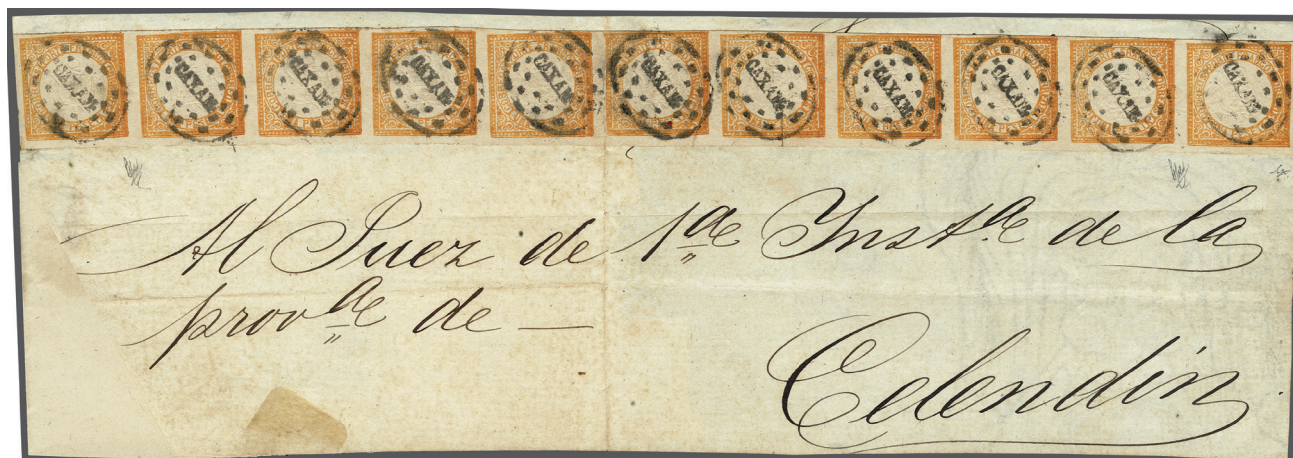 CAXAM. CAXAM. CAXAM. CAXAM. CAXAM. CAXAM. CAXAM. CAXAM. CAXAM. CAXAM. CAXAM.
Al Juez de 1ª Instª de la
provª de —
Celendin